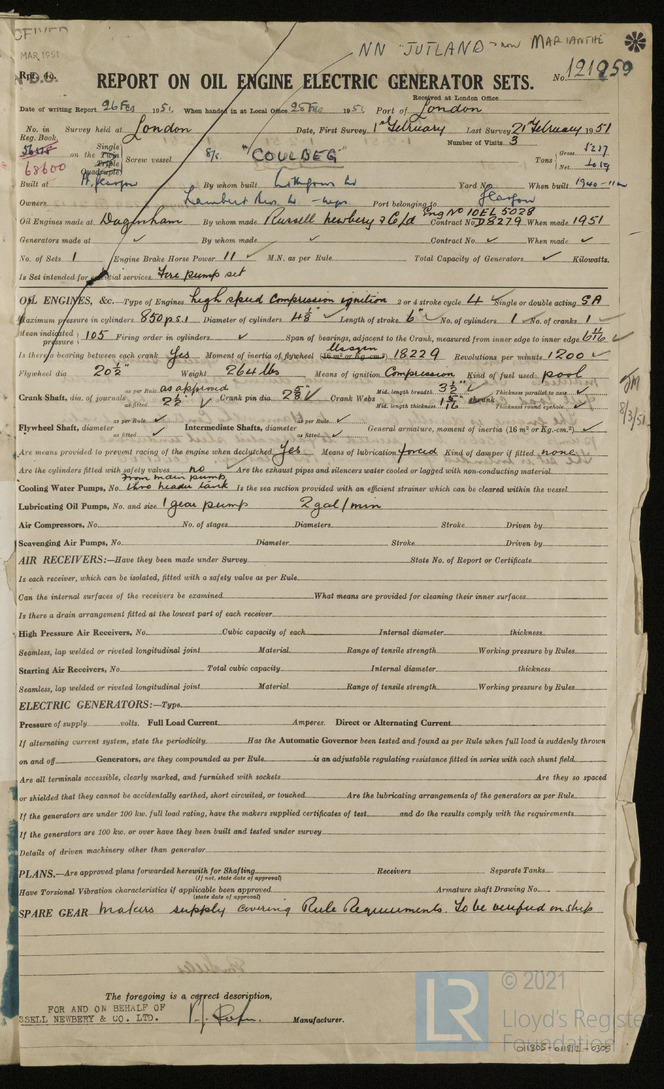 NN "JUTLAND" now MARIANTHE
MAR 1951
Rpt. 4c.
REPORT ON OIL ENGINE ELECTRIC GENERATOR SETS.
No. 121959
Received at London Office
Date of writing Report 26 Feb 1951. When handed in at Local Office 25 Feb 1951. Port of London
No. in Reg. Book. Survey held at London Date, First Survey 1st February Last Survey 21st February 1951
Number of Visits 3
68600 on the Single Twin Triple Quadruple Screw vessel S/S. "COULBEG" Tons Gross 5217 Net
Built at By whom built Lithgows Ld Yard No. When built 1940-11m
Owners Lambert Bros. Ld Port belonging to Glasgow
Oil Engines made at Dagenham By whom made Russell Newbery & Co Ld Eng No 10EL 5028 Contract No. D8279 When made 1951
Generators made at ✓ By whom made ✓ Contract No. ✓ When made ✓
No. of Sets 1 Engine Brake Horse Power 11 ✓ M.N. as per Rule Total Capacity of Generators ✓ Kilowatts.
Is Set intended for special services Fire pump set
OIL ENGINES, &c.—Type of Engines high speed Compression ignition 2 or 4 stroke cycle 4 ✓ Single or double acting SA
Maximum pressure in cylinders 850 p.s.i Diameter of cylinders 4 1/8" ✓ Length of stroke 6" ✓ No. of cylinders 1 ✓ No. of cranks 1 ✓
Mean indicated pressure 105 Firing order in cylinders ✓ Span of bearings, adjacent to the Crank, measured from inner edge to inner edge 6 11/16 ✓
Is there a bearing between each crank Yes Moment of inertia of flywheel (16 m² or Kg.-cm².) 18229 Revolutions per minute 1200 ✓
Flywheel dia. 20 1/2" Weight 264 lbs Means of ignition Compression Kind of fuel used pool
Crank Shaft, dia. of journals as per Rule as approved as fitted 2 1/2" ✓ Crank pin dia. ✓ Crank Webs Mid. length breadth 3 1/2" ✓ Thickness parallel to axis ✓
Mid. length thickness shrunk Thickness round eyehole ✓
JM 8/3/51
Flywheel Shaft, diameter as per Rule ✓ as fitted ✓ Intermediate Shafts, diameter as per Rule ✓ as fitted ✓ General armature, moment of inertia (16 m² or Kg.-cm.²) ✓
Are means provided to prevent racing of the engine when declutched Yes Means of lubrication forced Kind of damper if fitted none
Are the cylinders fitted with safety valves no ✓ Are the exhaust pipes and silencers water cooled or lagged with non-conducting material
Cooling Water Pumps, No. From main pump thro header tank Is the sea suction provided with an efficient strainer which can be cleared within the vessel
Lubricating Oil Pumps, No. and size 1 gear pump 2 gal/min
Air Compressors, No. No. of stages Diameters Stroke Driven by
Scavenging Air Pumps, No. Diameter Stroke Driven by
AIR RECEIVERS:—Have they been made under Survey State No. of Report or Certificate
Is each receiver, which can be isolated, fitted with a safety valve as per Rule
Can the internal surfaces of the receivers be examined What means are provided for cleaning their inner surfaces
Is there a drain arrangement fitted at the lowest part of each receiver
High Pressure Air Receivers, No. Cubic capacity of each Internal diameter thickness
Seamless, lap welded or riveted longitudinal joint Material Range of tensile strength Working pressure by Rules
Starting Air Receivers, No. Total cubic capacity Internal diameter thickness
Seamless, lap welded or riveted longitudinal joint Material Range of tensile strength Working pressure by Rules
ELECTRIC GENERATORS:—Type
Pressure of supply volts. Full Load Current Amperes. Direct or Alternating Current
If alternating current system, state the periodicity Has the Automatic Governor been tested and found as per Rule when full load is suddenly thrown
on and off Generators, are they compounded as per Rule is an adjustable regulating resistance fitted in series with each shunt field
Are all terminals accessible, clearly marked, and furnished with sockets Are they so spaced
or shielded that they cannot be accidentally earthed, short circuited, or touched Are the lubricating arrangements of the generators as per Rule
If the generators are under 100 kw. full load rating, have the makers supplied certificates of test and do the results comply with the requirements
If the generators are 100 kw. or over have they been built and tested under survey
Details of driven machinery other than generator
PLANS.—Are approved plans forwarded herewith for Shafting Receivers Separate Tanks
(If not, state date of approval)
Have Torsional Vibration characteristics if applicable been approved Armature shaft Drawing No.
(state date of approval)
SPARE GEAR Makers supply covering Rule Requirements. To be verified on ship
The foregoing is a correct description,
FOR AND ON BEHALF OF
SSELL NEWBERY & CO. LTD. Manufacturer.
© 2021
LR Lloyd's Register
Foundation
011805-011812-0305